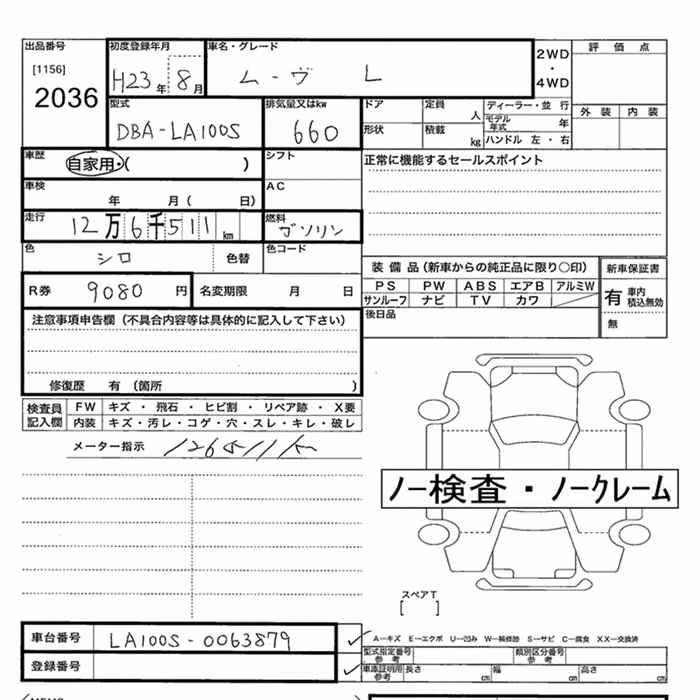 出品番号
[1156]
2036
初度登録年月
H23年 8月
車名・グレード
ムーヴ L
2WD
・
4WD
評価点
外装 内装
型式
DBA-LA100S
排気量又はkw
660
ドア
定員 人
ディーラー・並 行
モデル年式 年
形状
積載 kg
ハンドル 左・右
車歴
自家用・( )
シフト
正常に機能するセールスポイント
車検
年 月( 日)
AC
走行
12万6千511km
燃料
ガソリン
色
シロ
色替
色コード
装備品(新車からの純正品に限り○印)
PS PW ABS エアB アルミW
サンルーフ ナビ TV カワ
後日品
新車保証書
有 車内積込無効
無
R券 9080円
名変期限 月 日
注意事項申告欄(不具合内容等は具体的に記入して下さい)
修復歴 有(箇所 )
検査員記入欄
FW キズ・飛石・ヒビ割・リペア跡・X要
内装 キズ・汚レ・コゲ・穴・スレ・キレ・破レ
メーター指示 126511km
ノー検査・ノークレーム
スペアT
[ ]
車台番号 LA100S-0063879
登録番号
A−キズ E−エクボ U−凹み W−補修跡 S−サビ C−腐食 XX−交換済
型式指定番号 参考
類別区分番号 参考
車庫証明用 参考 長さ cm 幅 cm 高さ cm